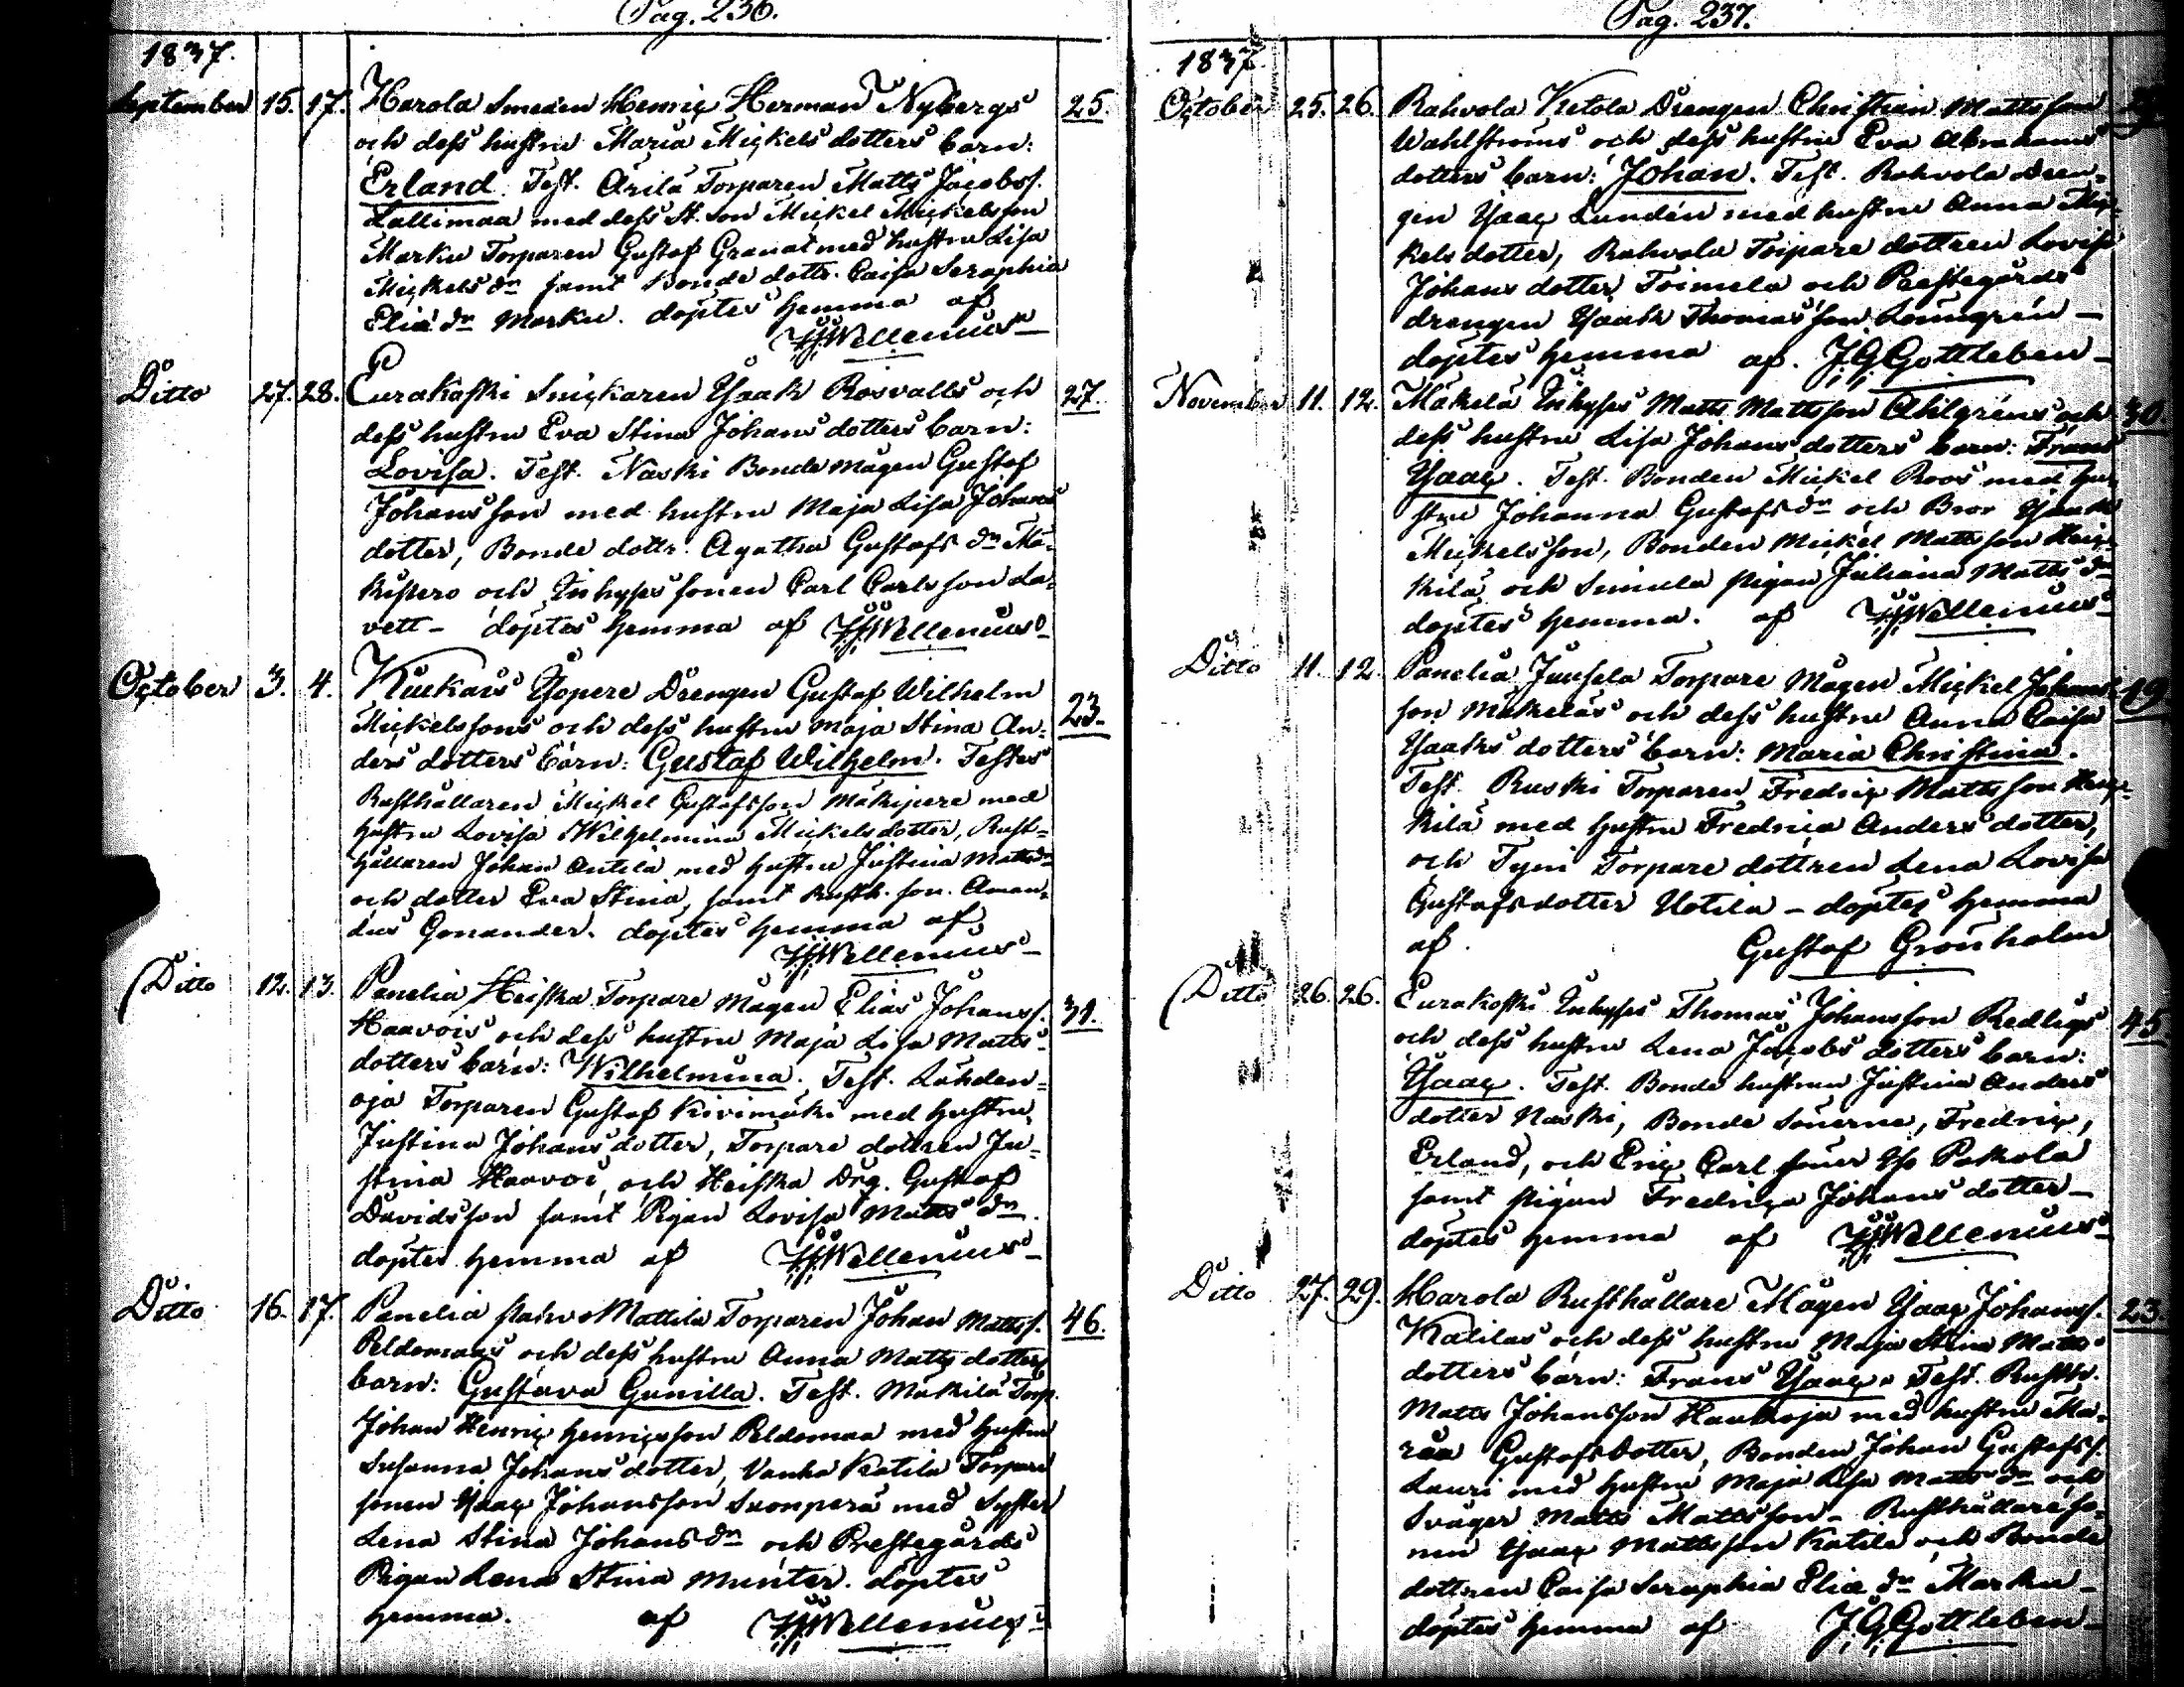 Pag. 236.
1837.
September 15. 17. Harola Smeden Henric Herman Nybergs 25.
och dess hustru Maria Mickels dotters barn:
Erland. Test. Arila Torparen Matts Jacobss.
Lallimaa med dess St. son Mickel Mickelsson
Marku Torparen Gustaf Granat med hustru Lisa
Mickels dr samt Bonde dottr. Caisa Seraphia
Eliæ dr Marku. döptes hemma af
Wellenius
Ditto 27. 28. Eurakoski Snickaren Ysaak Rosvalls och 27.
dess hustru Eva Stina Johans dotters barn:
Lovisa. Test. Naski Bonde mågen Gustaf
Johansson med hustru Maja Lisa Johans
dotter, Bonde dottr. Agatha Gustafs dr Mä-
kipere och Inhyses sonen Carl Carlsson La-
vett - döptes hemma af Wellenius
October 3. 4. Kiukais Yopere Drengen Gustaf Wilhelm 23.
Mickelssons och dess hustru Maja Stina An-
ders dotters barn: Gustaf Wilhelm. Testes
Rusthållaren Mickel Gustafsson Mäkipere med
hustru Lovisa Wilhelmina Mickels dotter, Rust-
hållaren Johan Antila med hustru Justina Matts dr
och dotter Eva Stina, samt Rusth. son. Aman-
dus Gonander. döptes hemma af
Wellenius
Ditto 12. 13. Panelia Heiska Torpare Mågen Elias Johanss. 31.
Haavois och dess hustru Maja Lisa Matts
dotters barn: Wilhelmina. Test. Lähden-
oja Torparen Gustaf Kivimäki med hustru
Justina Johans dotter, Torpare dottren Ju-
stina Haavoi, och Heiska Drg. Gustaf
Davidsson samt Pigan Lovisa Matts dr.
döptes hemma af Wellenius
Ditto 16. 17. Panelia Mattila Torparen Johan Mattss. 46.
Peldomaas och dess hustru Anna Matts dotters
barn: Gustava Gunilla. Test. Mäkilä Torp.
Johan Henric Henricsson Peldomaa med hustru
Susanna Johans dotter, Vanha Katila Torpare
sonen Ysaac Johansson Suonperä med Syster
Lena Stina Johans dr och Prestegårds
Pigan Lena Stina Munter. döptes
hemma. af Wellenius
Pag. 237.
1837
October 25. 26. Rahvola Ketola Drengen Christian Mattsson
Wahlstroms och dess hustru Eva Abrahams
dotters barn: Johan. Test. Rahvola Dren-
gen Ysaac Lundén med hustru Anna Mic-
kels dotter, Rahvola Torpare dottren Lovisa
Johans dotter Toimela och Prestegårds
drengen Ysaak Thomasson Lönngrén -
döptes hemma af. J.G Gottleben
November 11. 12. Mäkelä Inhyses Matts Mattsson Ahlgréns och 30.
dess hustru Lisa Johans dotters barn: Frans
Ysaac. Test. Bonden Mickel Roos med hu-
stru Johanna Gustafs dr och Bror Ysaak
Mickelsson, Bonden Mickel Mattsson Heic-
kilä och Simula pigan Juliana Matts dr
döptes hemma. af Wellenius
Ditto 11. 12 Panelia Juusela Torpare Mågen Mickel Johans- 19
son Mäkeläs och dess hustru Anna Caisa
Ysaaks dotters barn: Maria Christina.
Test. Ruski Torparen Fredric Mattsson Heic-
kilä med hustru Fredrica Anders dotter,
och Tyni Torpare dottren Lena Lovisa
Gustafs dotter Uotila - döptes hemma
af Gustaf Grönholm
Ditto 26. 26. Eurakoski Inhyses Thomas Johansson Redligs 45
och dess hustru Lena Jacobs dotters barn:
Ysaac. Test. Bonde hustrun Justina Anders
dotter Naski, Bonde Sönerne, Fredric,
Erland, och Eric Carl söner Pakola
samt pigan Fredrica Johans dotter -
döptes hemma af Wellenius
Ditto 27. 29. Harola Rusthållare Mågen Ysaac Johanss. 23.
Katilas och dess hustru Maja Stina Matts
dotters barn: Frans Ysaac. Test. Rusth.
Matts Johansson Haukioja med hustru Ma-
ria Gustafs dotter, Bonden Johan Gustafss.
Lauri med hustru Maja Lisa Matts dr och
Svåger Matts Mattsson - Rusthållare so-
nen Ysaac Mattsson Katila och Bonde
dottren Caisa Seraphia Eliæ dr Marku -
döptes hemma af J.G Gottleben